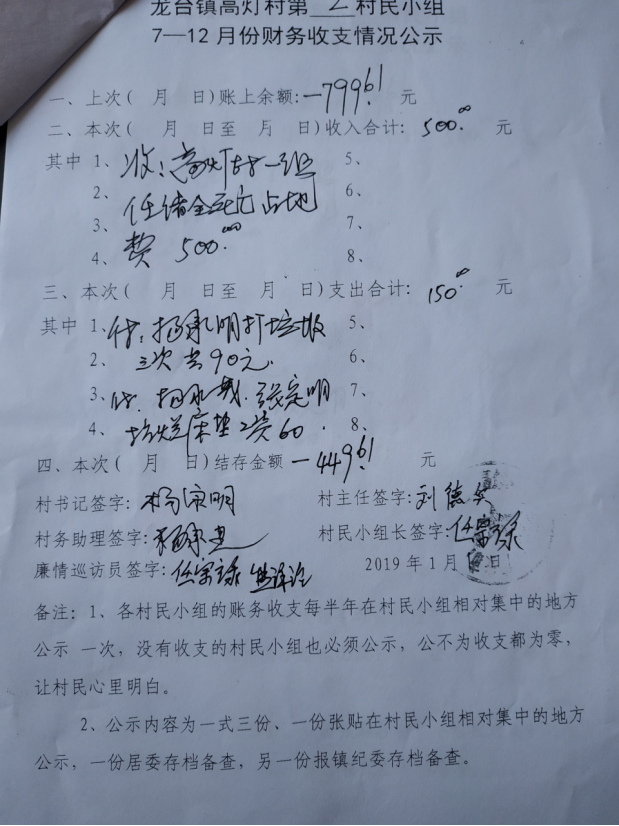 龙台镇高灯村第 2 村民小组
7—12月份财务收支情况公示
一、上次( 月 日)账上余额:-799.61 元
二、本次( 月 日至 月 日)收入合计: 500.00 元
其中 1、收:高灯村一组 5、
2、任绪全 占地 6、
3、 7、
4、费 500.00 8、
三、本次( 月 日至 月 日)支出合计: 150.00 元
其中 1、付:杨承明打垃圾 5、
2、三次共90元. 6、
3、付. 张定明 7、
4、床垫 60. 8、
四、本次( 月 日)结存金额 -449.61 元
村书记签字: 村主任签字:刘德
村务助理签字: 村民小组长签字:任
廉情巡访员签字:任
2019年1月 日
备注:1、各村民小组的账务收支每半年在村民小组相对集中的地方
公示 一次,没有收支的村民小组也必须公示,公不为收支都为零,
让村民心里明白。
2、公示内容为一式三份、一份张贴在村民小组相对集中的地方
公示,一份居委存档备查,另一份报镇纪委存档备查。